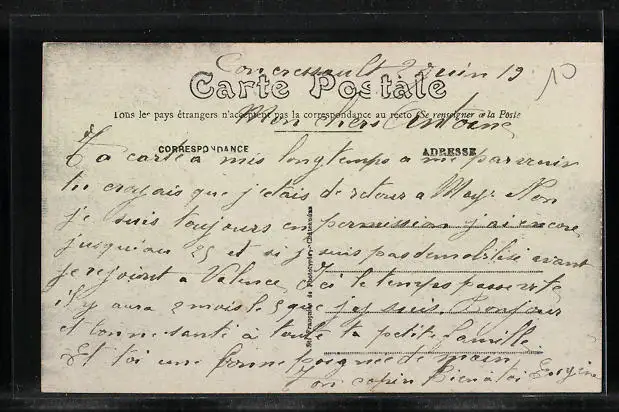 Concressault 2 Juin 19
Carte Postale
Tous les pays étrangers n'acceptent pas la correspondance au recto (Se renseigner à la Poste
Mon chers Antoine
CORRESPONDANCE
ADRESSE
Ta carte a mis longtemps a me parvenir
tu croyais que j'etais de retour a Non
je suis toujours en permission j'ai encore
jusqu'au 25 et si je suis pas demobilisé avant
je rejoint a Valence Ici le temps passe vite
il y aura 2 mois le 5 que j'y suis. Bonjour
et bonne santé à toute ta petite famille
Et toi une bonne poignée de main
Ton copin Bien a toi
Sté Française de Phototypie, Châteaudun